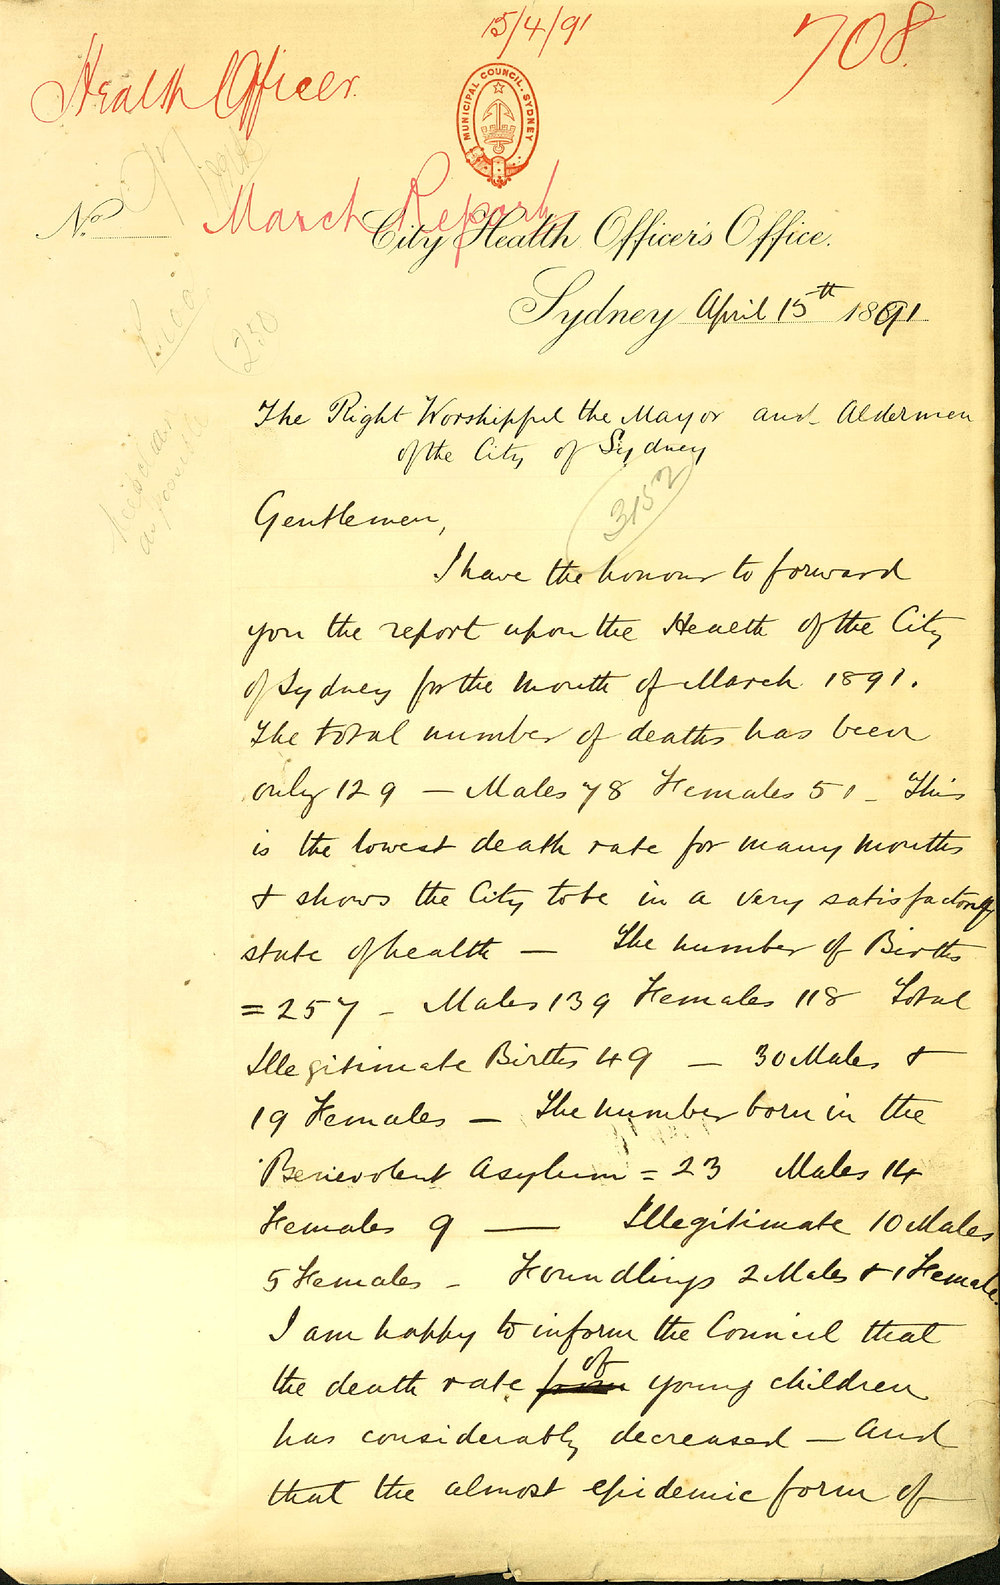 15/4/91
708.
Health Officer.
MUNICIPAL COUNCIL. SYDNEY
March Report
No.
City Health Officer's Office.
Sydney April 15th 1891
250
The Right Worshipful the Mayor and Aldermen
of the City of Sydney
3152
Gentlemen,
I have the honour to forward
you the report upon the Health of the City
of Sydney for the month of March 1891.
The total number of deaths has been
only 129 — Males 78 Females 51 — This
is the lowest death rate for many months
& shows the City to be in a very satisfactory
state of health — The number of Births
= 257 — Males 139 Females 118 Total
Illegitimate Births 49 — 30 Males &
19 Females — The number born in the
Benevolent Asylum = 23 Males 14
Females 9 — Illegitimate 10 Males
5 Females — Foundlings 2 Males & 1 Female.
I am happy to inform the Council that
the death rate of young children
has considerably decreased — and
that the almost epidemic form of